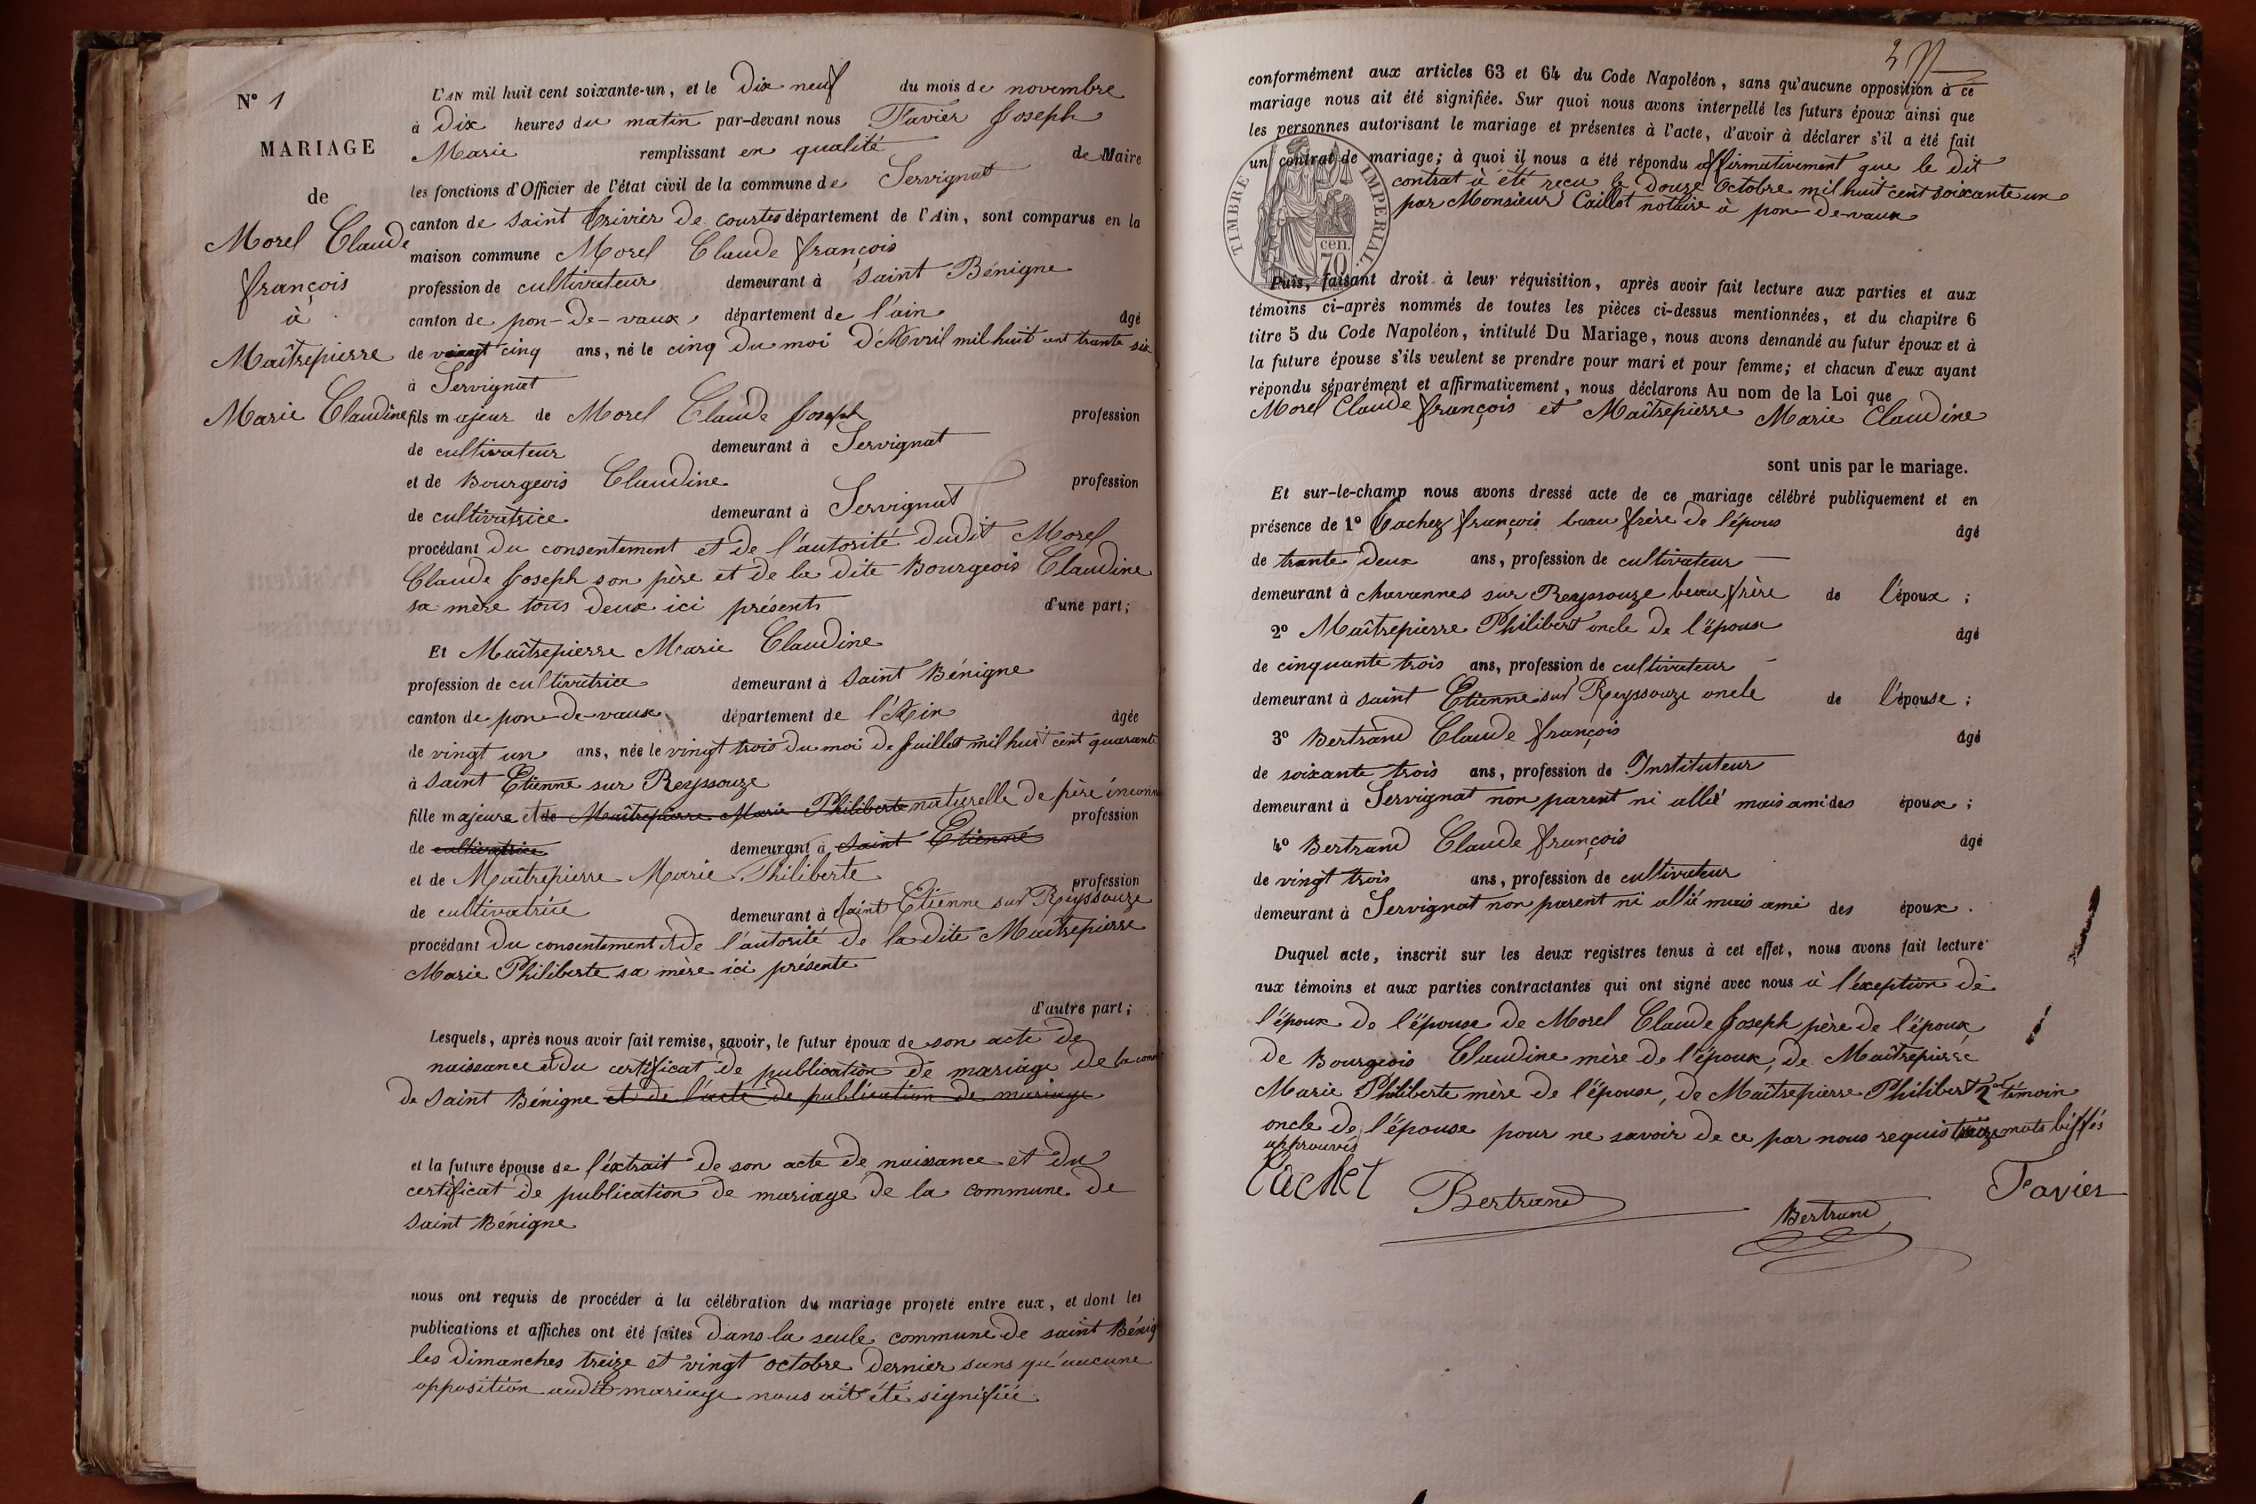 N° 1
MARIAGE
de
Morel Claude
françois
à
Maîtrepierre
Marie Claudine
L'AN mil huit cent soixante-un, et le Dix neuf du mois de novembre
à Dix heures du matin par-devant nous Favier Joseph
Marie remplissant en qualité de Maire
les fonctions d'Officier de l'état civil de la commune de Servignat
canton de saint trivier de courtes département de l'Ain, sont comparus en la
maison commune Morel Claude françois
profession de cultivateur demeurant à saint Bénigne
canton de pon-de-vaux, département de l'ain âgé
de vingt cinq ans, né le cinq du moi d'Avril mil huit cent trante six
à Servignat
fils majeur de Morel Claude Joseph profession
de cultivateur demeurant à Servignat
et de Bourgeois Claudine profession
de cultivatrice demeurant à Servignat
procédant du consentement et de l'autorité dudit Morel
Claude Joseph son père et de la dite Bourgeois Claudine
sa mère tous deux ici présents d'une part;
Et Maîtrepierre Marie Claudine
profession de cultivatrice demeurant à saint Bénigne
canton de pon-de-vaux département de l'Ain âgée
de vingt un ans, née le vingt trois du moi de Juillet mil huit cent quarante
à saint Etienne sur Reyssouze
fille majeure et de Maîtrepierre Marie Philiberte naturelle de père inconnu
profession
de cultivatrice demeurant à saint Etienne
et de Maîtrepierre Marie Philiberte profession
de cultivatrice demeurant à saint Etienne sur Reyssouze
procédant du consentement et de l'autorité de la dite Maîtrepierre
Marie Philiberte sa mère ici présente
d'autre part;
Lesquels, après nous avoir fait remise, savoir, le futur époux de son acte de
naissance et du certificat de publication de mariage de la com
de saint Bénigne et de l'acte de publication de mariage
et la future épouse de l'extrait de son acte de naissance et du
certificat de publication de mariage de la commune de
saint Bénigne
nous ont requis de procéder à la célébration du mariage projeté entre eux, et dont les
publications et affiches ont été faites dans la seule commune de saint Bénig
les dimanches treize et vingt octobre dernier sans qu'aucune
opposition audit mariage nous ait été signifiée
2
conformément aux articles 63 et 64 du Code Napoléon, sans qu'aucune opposition à ce
mariage nous ait été signifiée. Sur quoi nous avons interpellé les futurs époux ainsi que
les personnes autorisant le mariage et présentes à l'acte, d'avoir à déclarer s'il a été fait
un contrat de mariage; à quoi il nous a été répondu affirmativement que le dit
contrat à été reçu le Douze Octobre mil huit cent soixante un
par Monsieur Caillot notaire à pon-de-vaux
TIMBRE IMPÉRIAL
cen.
70
Puis, faisant droit à leur réquisition, après avoir fait lecture aux parties et aux
témoins ci-après nommés de toutes les pièces ci-dessus mentionnées, et du chapitre 6
titre 5 du Code Napoléon, intitulé Du Mariage, nous avons demandé au futur époux et à
la future épouse s'ils veulent se prendre pour mari et pour femme; et chacun d'eux ayant
répondu séparément et affirmativement, nous déclarons Au nom de la Loi que
Morel Claude françois et Maîtrepierre Marie Claudine
sont unis par le mariage.
Et sur-le-champ nous avons dressé acte de ce mariage célébré publiquement et en
présence de 1° Cachet françois beau frère de l'épous âgé
de trante deux ans, profession de cultivateur
demeurant à chavannes sur Reyssouze beau frère de l'époux;
2° Maîtrepierre Philibert oncle de l'épouse âgé
de cinquante trois ans, profession de cultivateur
demeurant à saint Etienne sur Reyssouze oncle de l'épouse;
3° Bertrand Claude françois âgé
de soixante trois ans, profession de Instituteur
demeurant à Servignat non parent ni allié mais ami des époux;
4° Bertrand Claude françois âgé
de vingt trois ans, profession de cultivateur
demeurant à Servignat non parent ni allié mais ami des époux.
Duquel acte, inscrit sur les deux registres tenus à cet effet, nous avons fait lecture
aux témoins et aux parties contractantes qui ont signé avec nous à l'éxeption de
l'époux de l'épouse de Morel Claude Joseph père de l'époux
de Bourgeois Claudine mère de l'époux, de Maîtrepierre
Marie Philiberte mère de l'épouse, de Maîtrepierre Philibert 2e témoin
oncle de l'épouse pour ne savoir de ce par nous requis mots biffés
approuvés
Cachet Bertrand Bertrand Favier